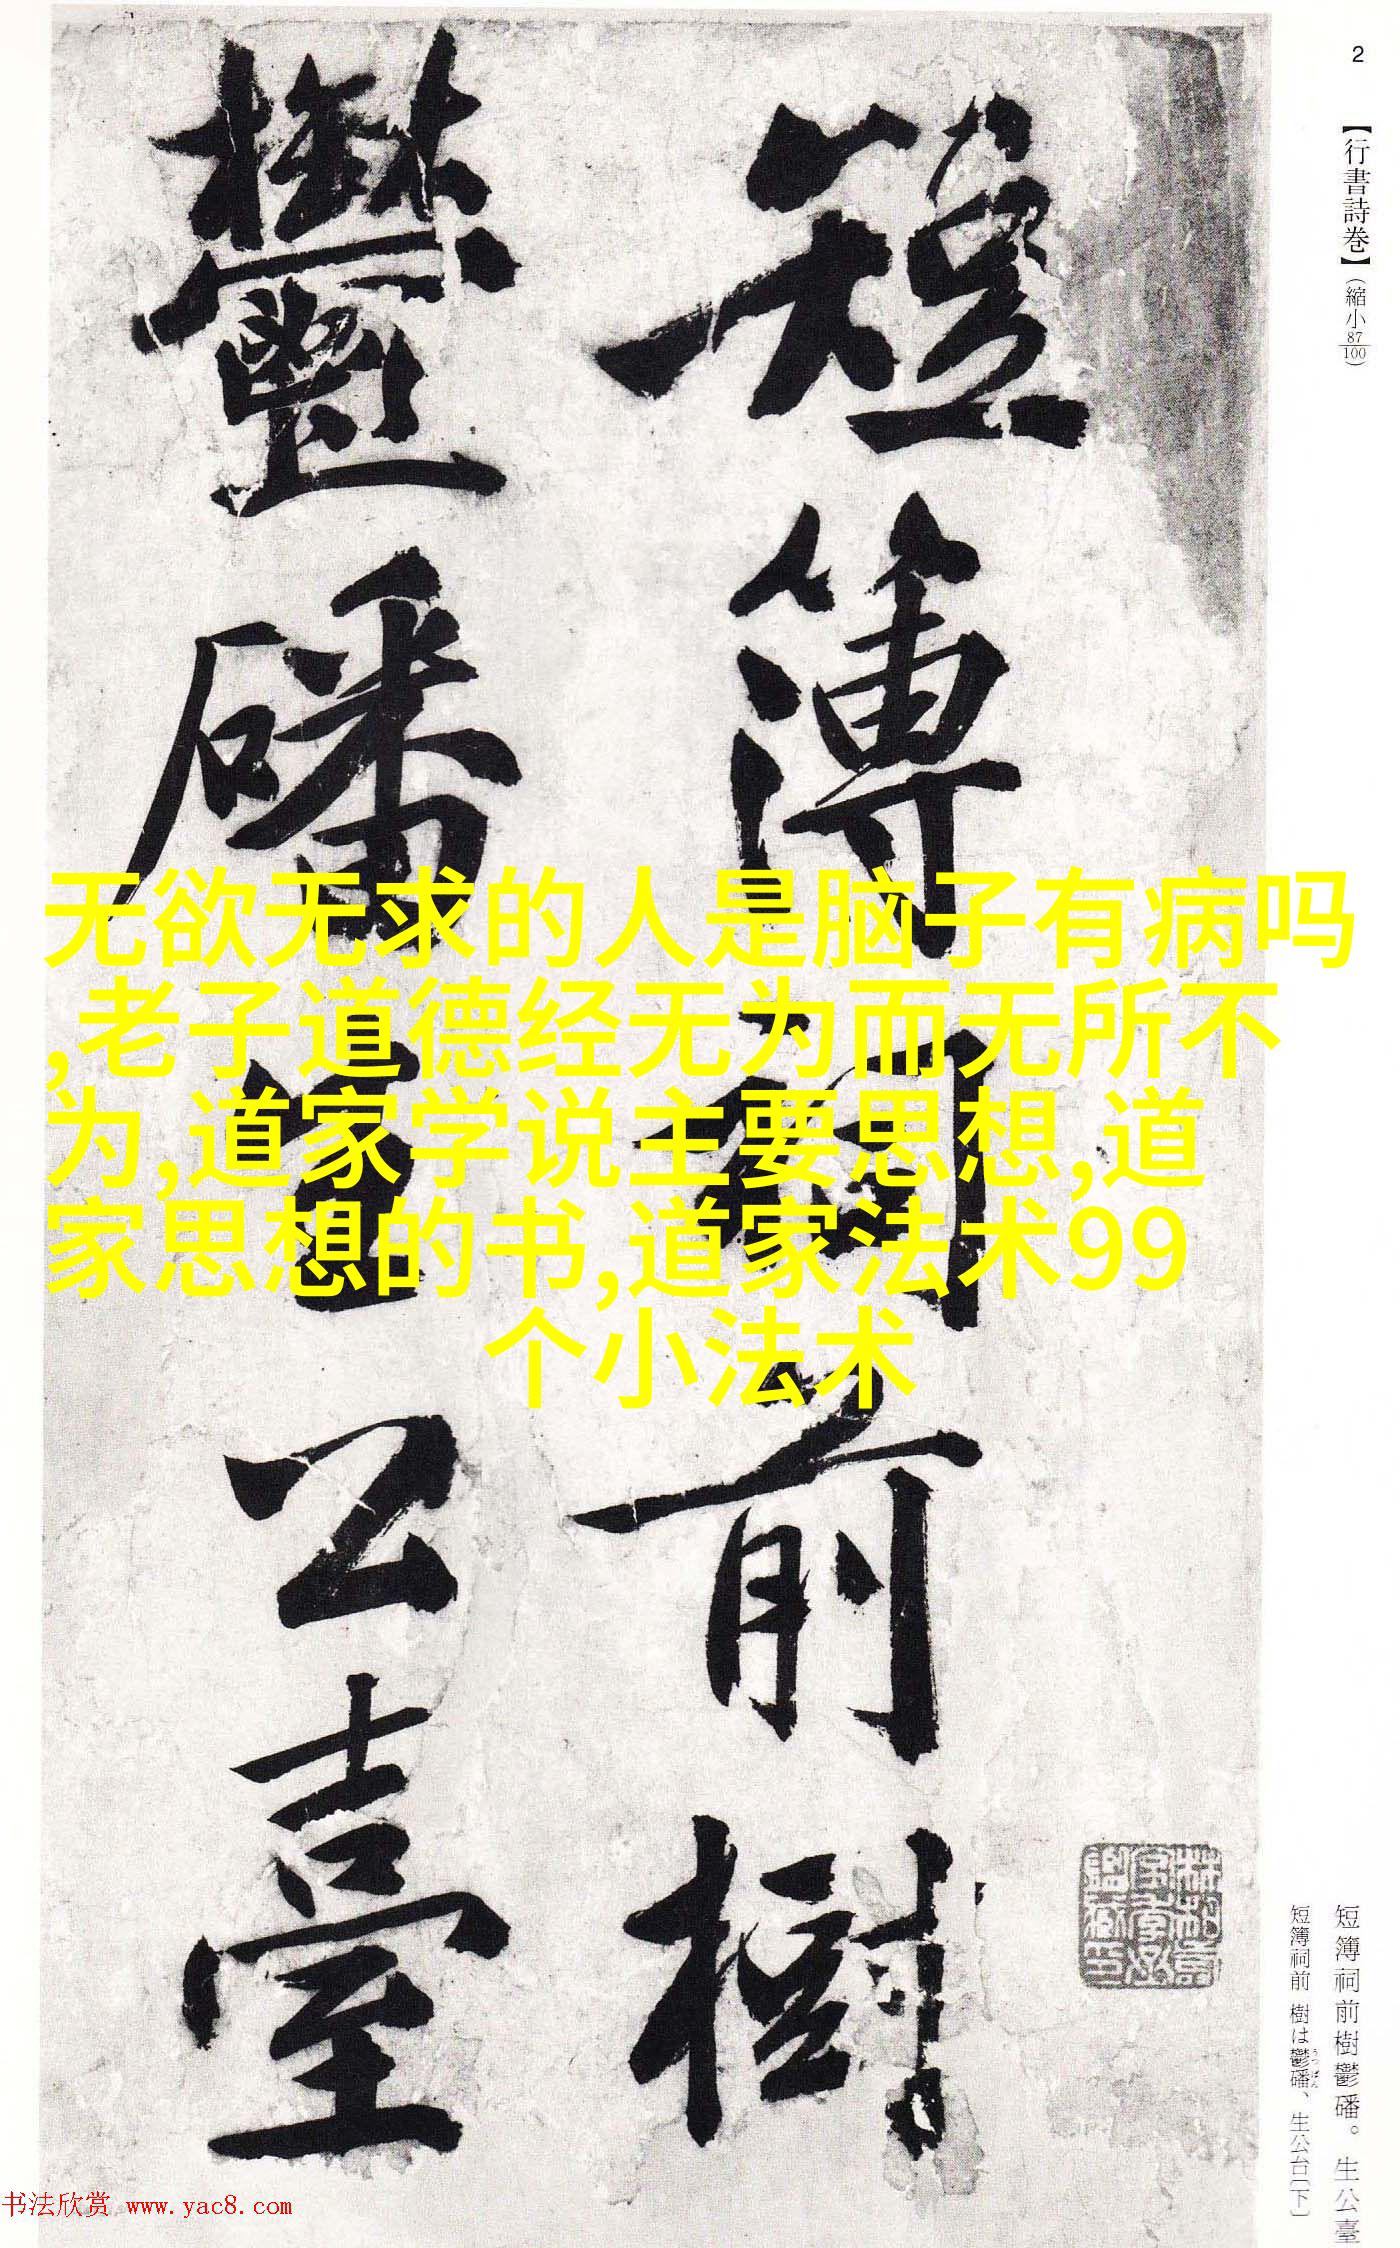 2
【行書詩巻】(縮小87/100)
短簿祠前樹
鬱磻生公臺
无欲无求的人是脑子有病吗
,老子道德经无为而无所不
为,道家学说主要思想,道
家思想的书,道家法术99
个小法术
短簿祠前樹鬱磻。生公臺
短簿祠前 樹は鬱磻、生公台〔下〕
书法欣赏 www.yac8.com